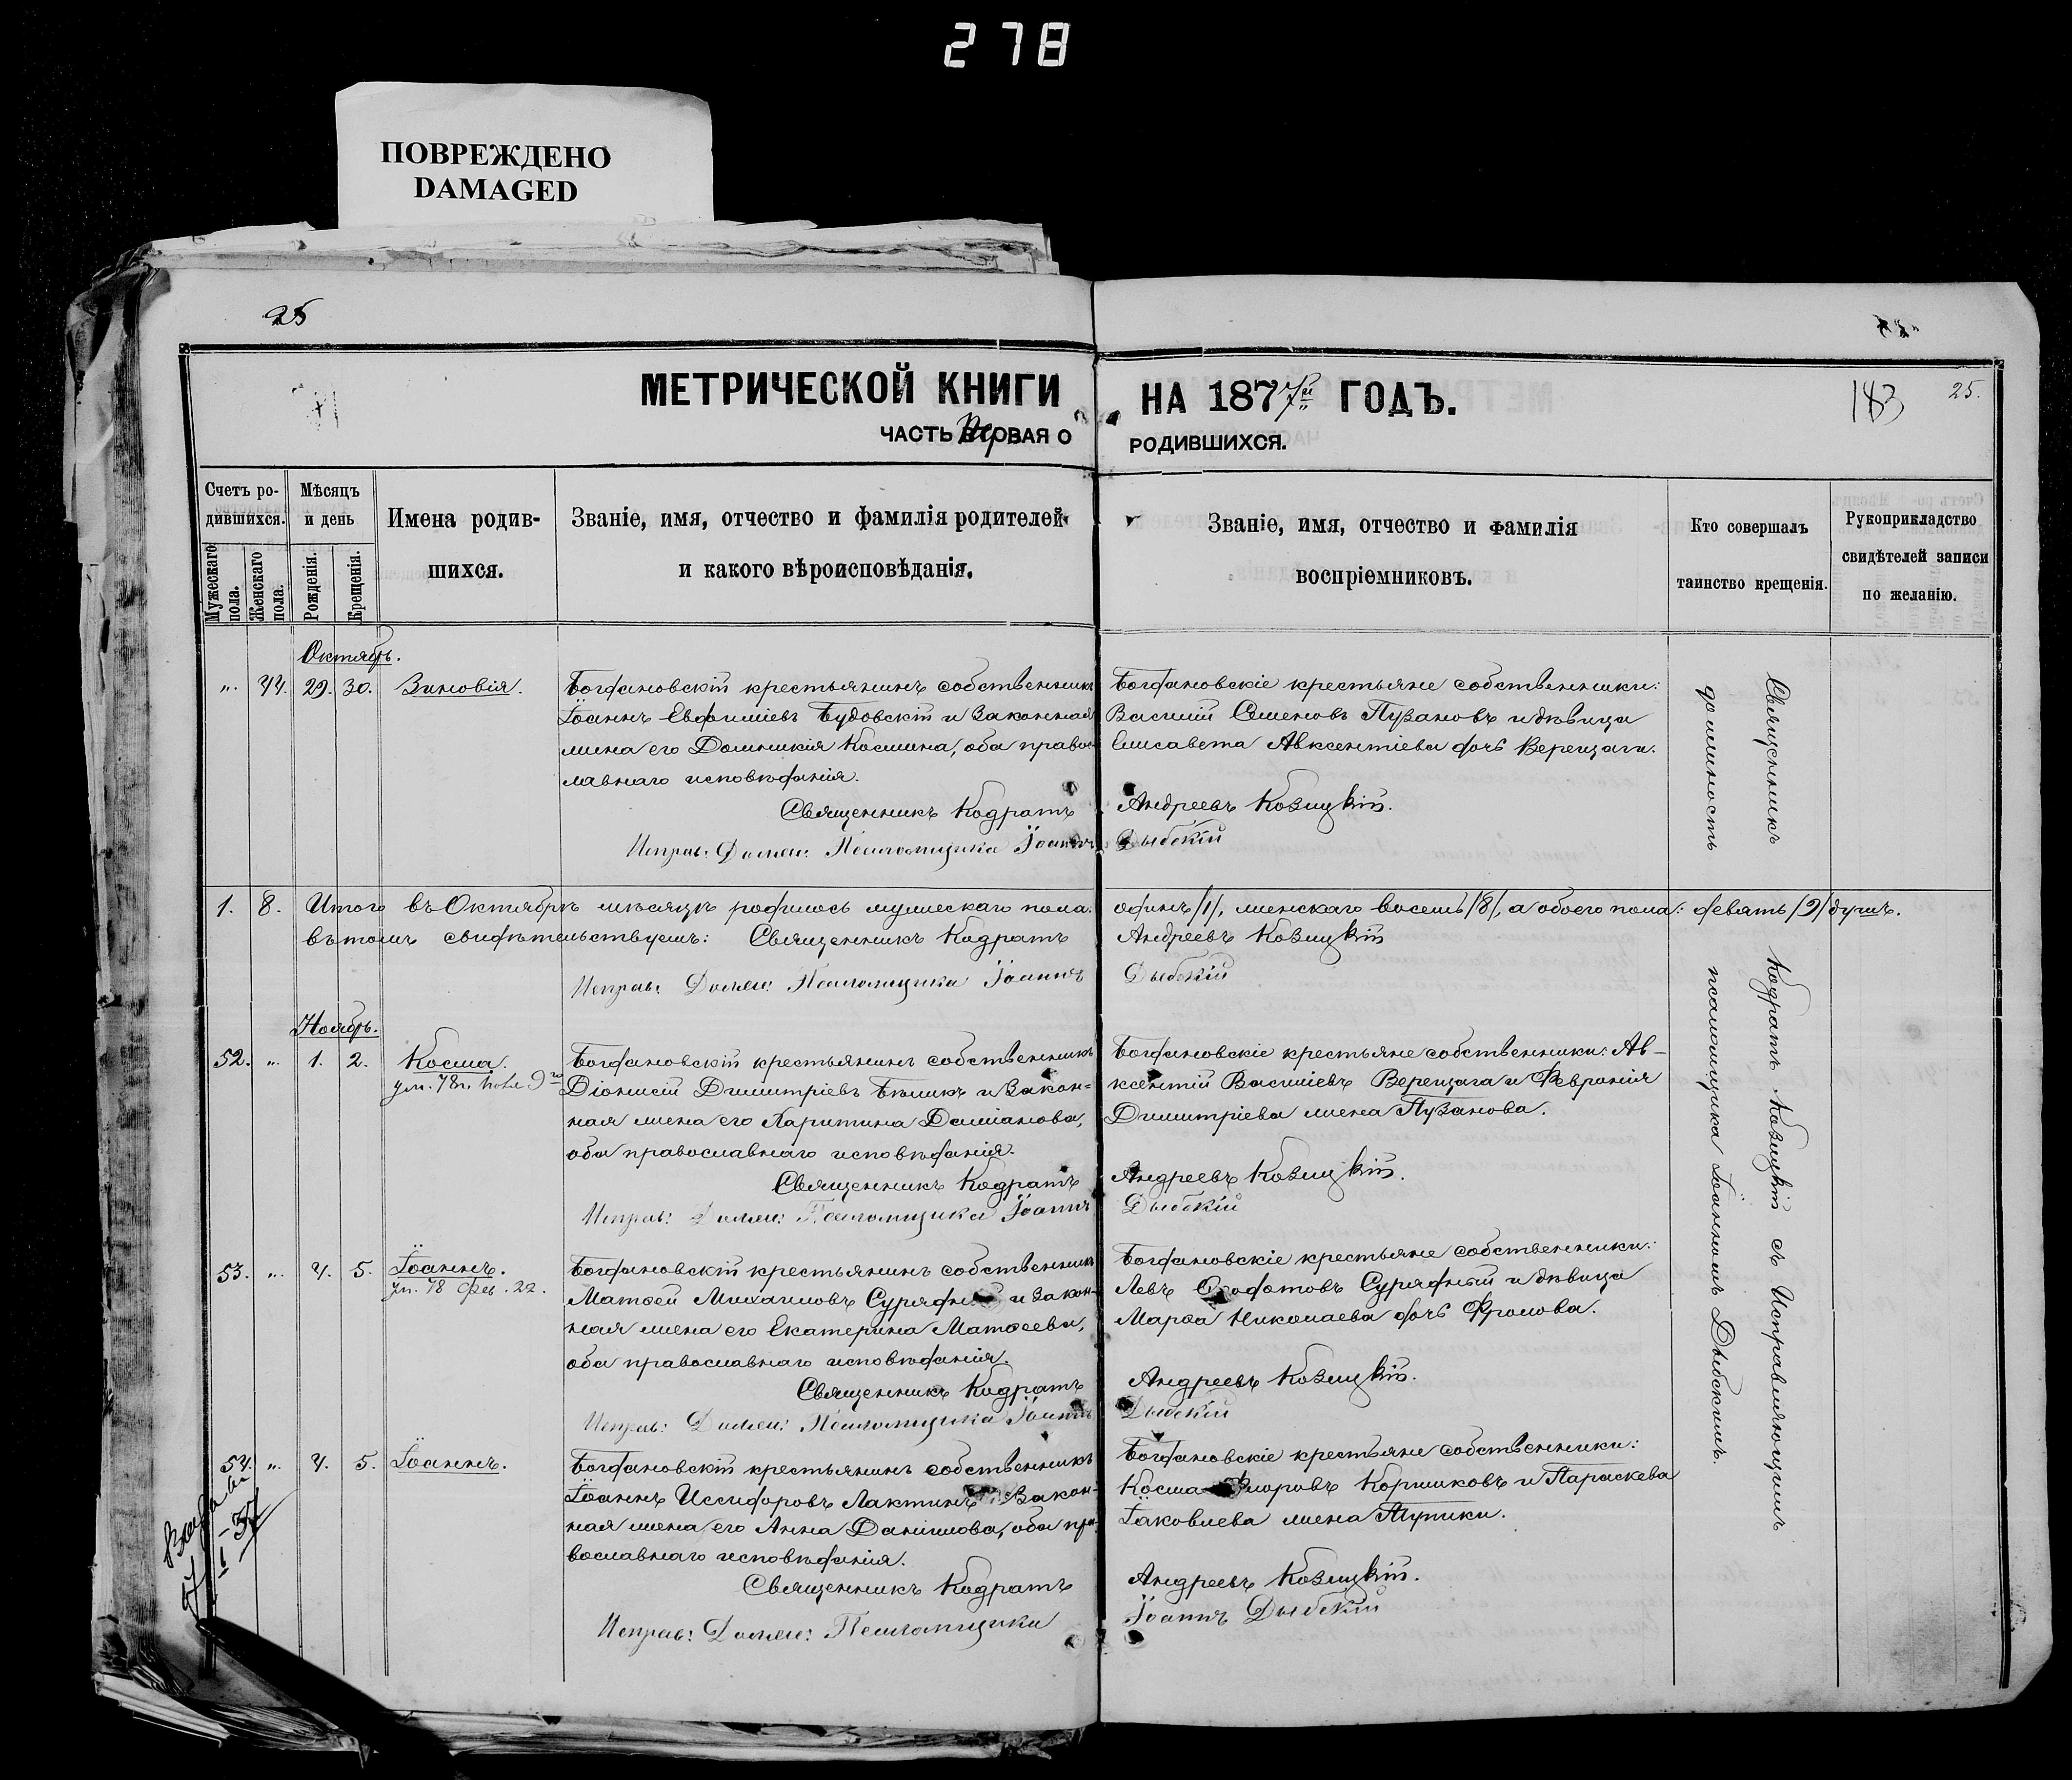 278
ПОВРЕЖДЕНО
DAMAGED
25
МЕТРИЧЕСКОЙ КНИГИ НА 1877й ГОДЪ.
183
25.
ЧАСТЬ Первая О РОДИВШИХСЯ.
Счетъ родившихся.
Мужескаго пола.
Женскаго пола.
Мѣсяцъ и день
Рожденія.
Крещенія.
Имена родившихся.
Званіе, имя, отчество и фамилія родителей
и какого вѣроисповѣданія.
Званіе, имя, отчество и фамилія
воспріемниковъ.
Кто совершалъ
таинство крещенія.
Рукоприкладство
свидѣтелей записи
по желанію.
Октябрь.
„ 44. 29. 30. Зиновія.
Богдановскій крестьянинъ собственникъ
Іоаннъ Евфиміевъ Будовскій и законная
жена его Домникія Космина, оба право-
славнаго исповѣданія.
Священникъ Кодратъ Андреевъ Козицкій.
Исправ: Должн: Псаломщика Іоаннъ Дыбскій
Богдановскіе крестьяне собственники:
Василій Семеновъ Пузановъ и дѣвица
Елисавета Авксентіева дочь Верещаги.
1. 8. Итого въ Октябрѣ мѣсяцѣ родилось мужескаго пола: одинъ /1/, женскаго восемь /8/, а обоего пола: девять /9/ душъ.
въ томъ свидѣтельствуемъ: Священникъ Кодратъ Андреевъ Козицкій
Исправ: Должн: Псаломщика Іоаннъ Дыбскій
Ноябрь.
52. „ 1. 2. Косма.
ум. 78 г. 9го
Богдановскій крестьянинъ собственникъ
Діонисій Димитріевъ Бѣликъ и закон=
ная жена его Харитина Даміанова,
оба православнаго исповѣданія.
Священникъ Кодратъ Андреевъ Козицкій.
Исправ: Должн: Псаломщика Іоаннъ Дыбскій
Богдановскіе крестьяне собственники: Ав-
ксентій Василіевъ Верещага и Февронія
Димитріева жена Пузанова.
53. „ 4. 5. Іоаннъ.
ум. 78 фев. 22.
Богдановскій крестьянинъ собственникъ
Матѳей Михаиловъ и закон-
ная жена его Екатерина Матѳеева,
оба православнаго исповѣданія.
Священникъ Кодратъ Андреевъ Козицкій.
Исправ: Должн: Псаломщика Іоаннъ Дыбскій
Богдановскіе крестьяне собственники:
Левъ Сурядный и дѣвица
Марѳа Николаева дочь Фролова.
54. „ 4. 5. Іоаннъ.
Богдановскій крестьянинъ собственникъ
Іоаннъ Исидоровъ Лактинъ закон-
ная жена его Анна Даніилова, оба пра-
вославнаго исповѣданія.
Священникъ Кодратъ Андреевъ Козицкій.
Исправ: Должн: Псаломщика Іоаннъ Дыбскій
Богдановскіе крестьяне собственники:
Косма Коршиковъ и Параскева
Іаковлева жена Тупики.
Священникъ Кодратъ Козицкій съ Исправляющимъ
должность псаломщика Іоанномъ Дыбскимъ.